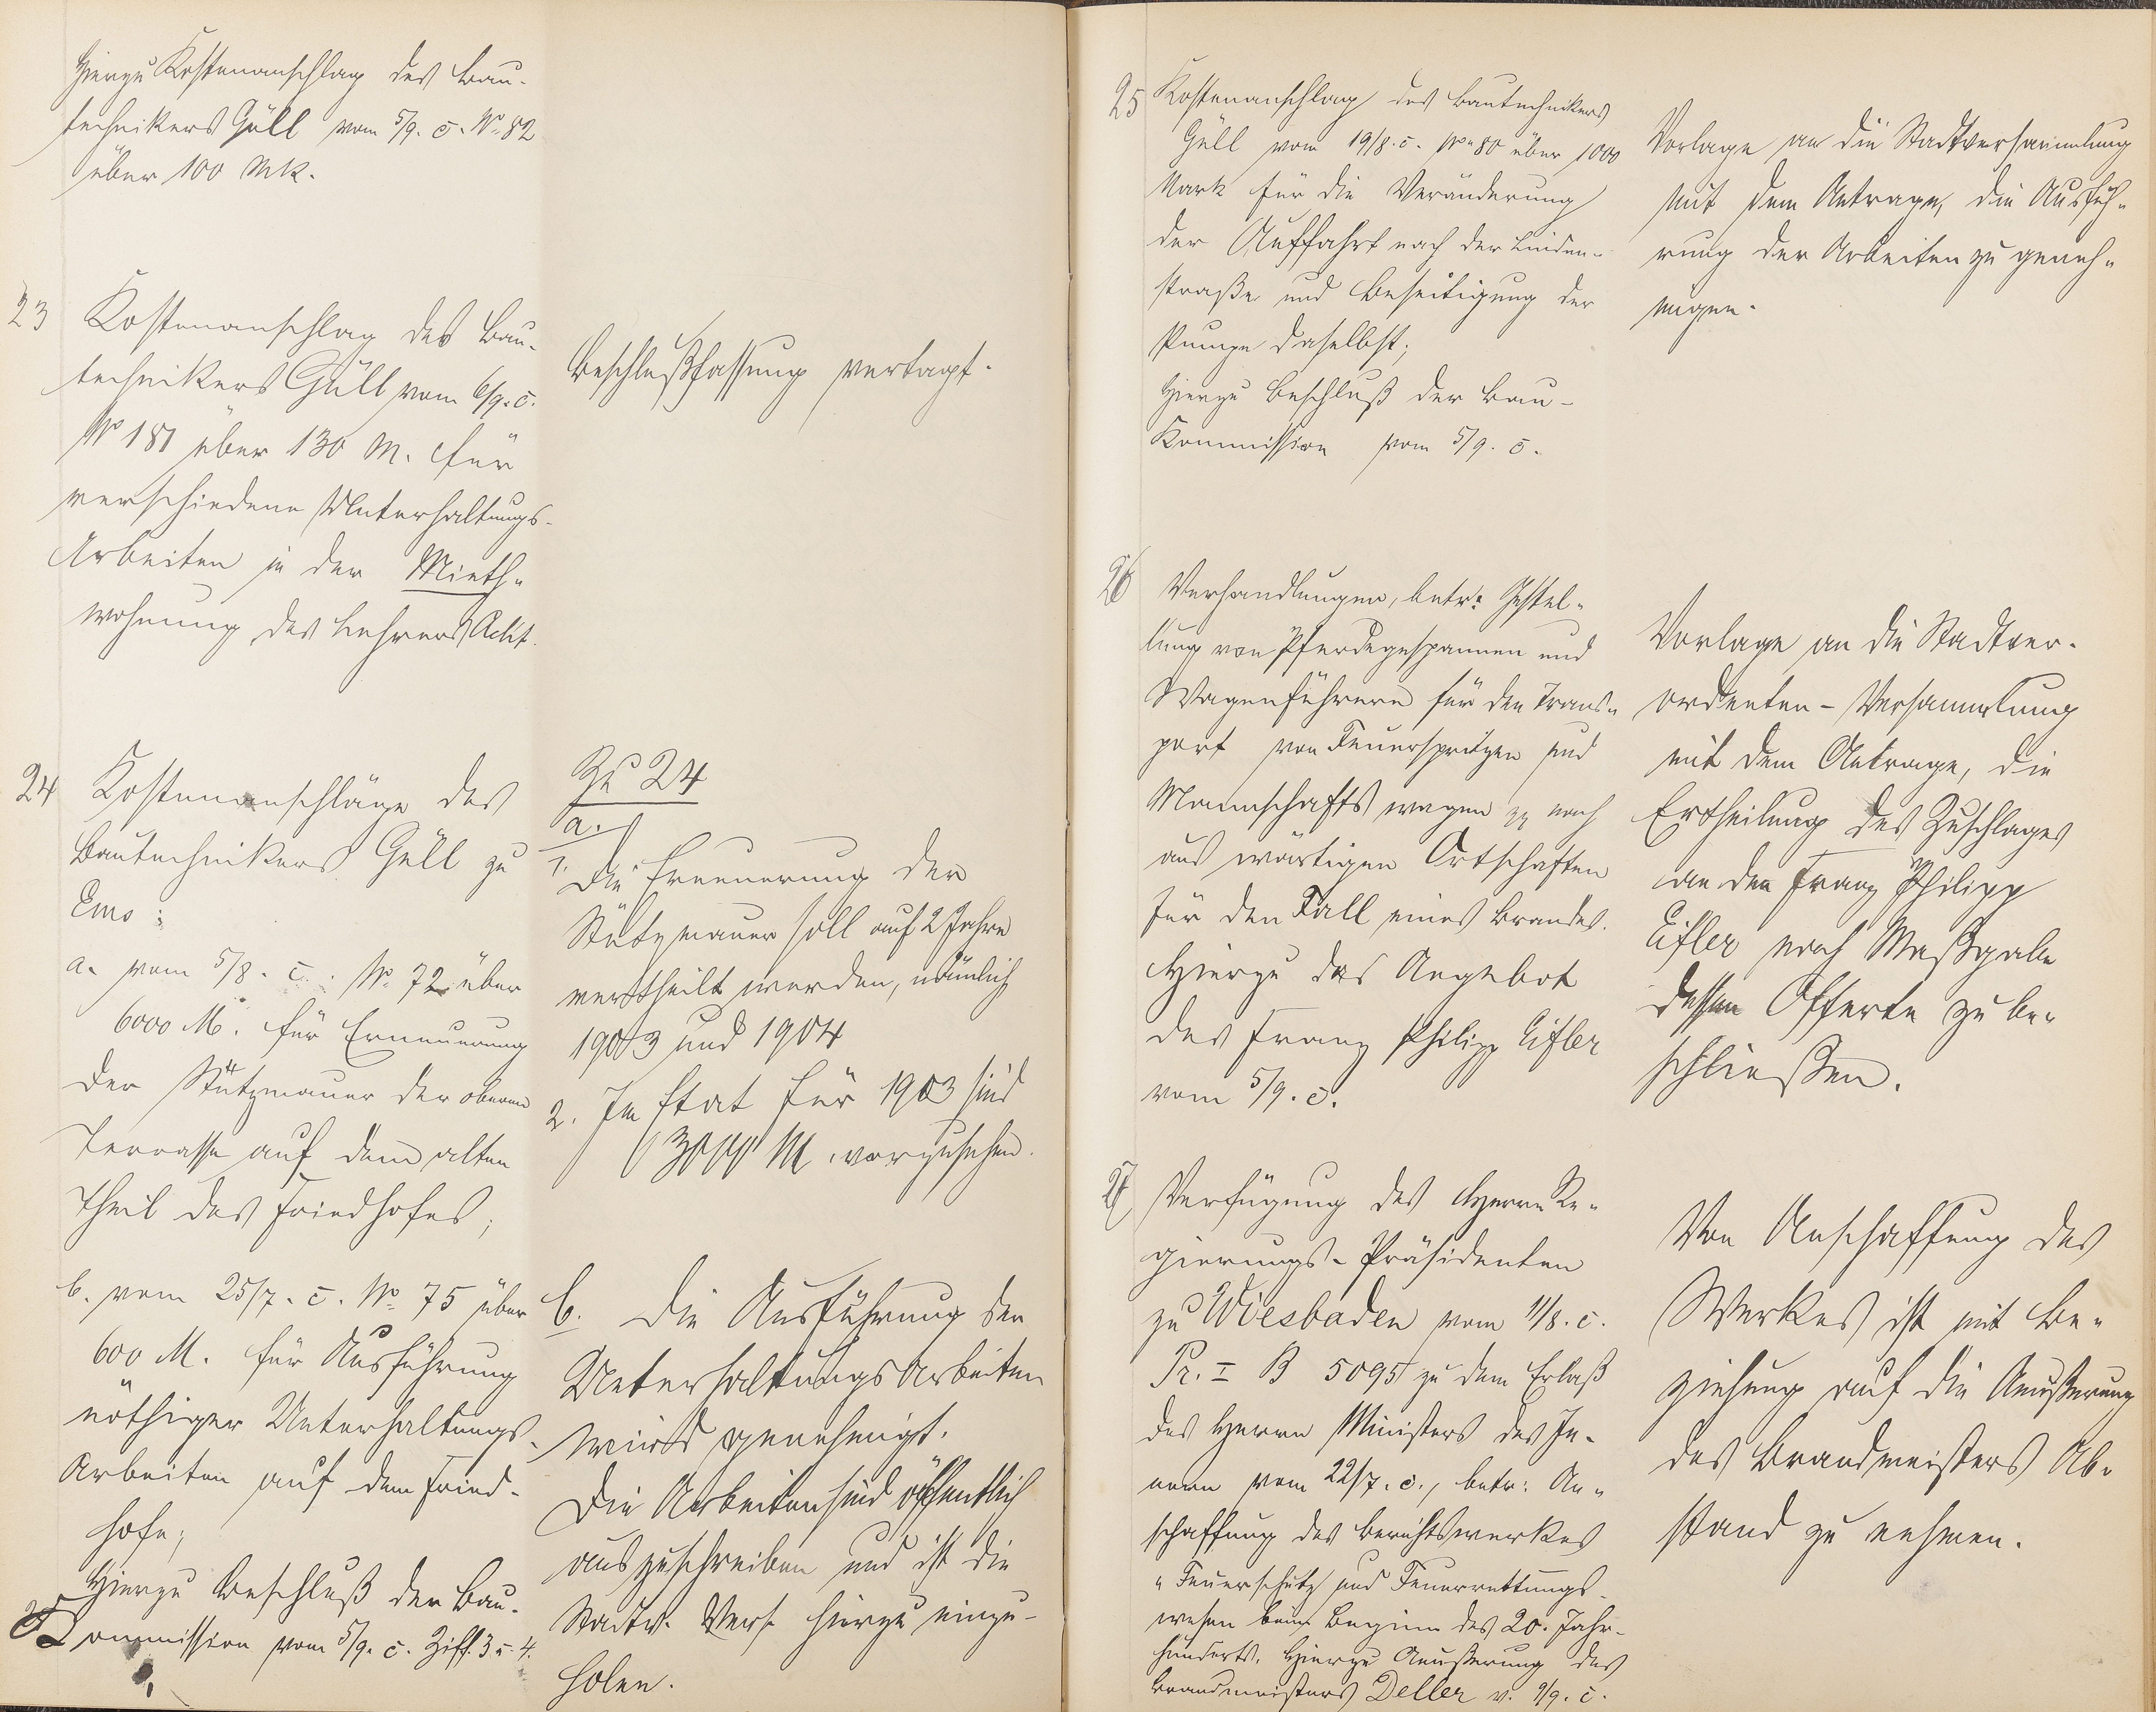 Hierzu Kostenanschlag des Bau-
technikers Güll vom 5/9. c. No 82
über 100 Mk.
23 Kostenanschlag des Bau-
technikers Güll vom 6/9. c.
No 181 über 130 M. für
verschiedene Unterhaltungs-
Arbeiten in der Mieth-
wohnung des Lehrers
Beschlußfassung vertagt.
24 Kostenanschläge des
Bautechnikers Güll zu
Ems:
a. vom 5/8. c. No. 72 über
6000 M. für Erneuerung
der Stützmauer der oberen
Terrasse auf dem alten
Theil des Friedhofes;
b. vom 25/7. c. No. 75 über
600 M. für Ausführung
nöthiger Unterhaltungs-
Arbeiten auf dem Fried-
hofe;
Hierzu Beschluß der Bau-
Commission vom 5/9. c. Ziff. 3 u. 4.
Zu 24
a.
1. Die Erneuerung der
Stützmauer soll auf 2 Jahre
vertheilt werden, nämlich
1903 und 1904
2. Im Etat für 1903 sind
M. vorzusehen.
b. Die Ausführung der
Unterhaltungsarbeiten
wird genehmigt.
Die Arbeiten sind öffentlich
auszuschreiben und ist die
Stadtv. Vers. hierzu einzu-
holen.
25 Kostenanschlag des Bautechnikers
Güll vom 19/8. c. No 80 über 1000
Mark für die Veränderung
der Auffahrt nach der Linden-
straße und Beseitigung der
Pumpe daselbst;
Hierzu Beschluß der Bau-
Kommission vom 5/9. c.
Vorlage an die Stadtversammlung
mit dem Antrage, die Ausfüh-
rung der Arbeiten zu geneh-
migen.
26 Verhandlungen, betr: Gestel-
lung von Pferdegespannen und
Wagenführern für den Trans-
port von Feuerspritzen und
Mannschaftswagen pp nach
auswärtigen Ortschaften
für den Fall eines Brandes.
Hierzu das Angebot
des Franz Philipp Eifler
vom 5/9. c.
Vorlage an die Stadtver-
ordneten-Versammlung
mit dem Antrage, die
Ertheilung des Zuschlages
an den Franz Philipp
Eifler nach Maßgabe
dessen Offerte zu be-
schließen.
27 Verfügung des Herrn Re-
gierungs-Präsidenten
zu Wiesbaden vom 11/8. c.
Pr. I B 5095 zu dem Erlaß
des Herrn Ministers des In-
nern vom 22/7. c., betr: An-
schaffung des Berichtswerkes
"Feuerschutz und Feuerrettungs-
wesen beim Beginn des 20. Jahr-
hunderts. Hierzu Aeußerung des
Brandmeisters Deller v. 9/9. c.
Von Anschaffung des
Werkes ist mit Be-
ziehung auf die Aeußerung
des Brandmeisters Ab-
stand zu nehmen.